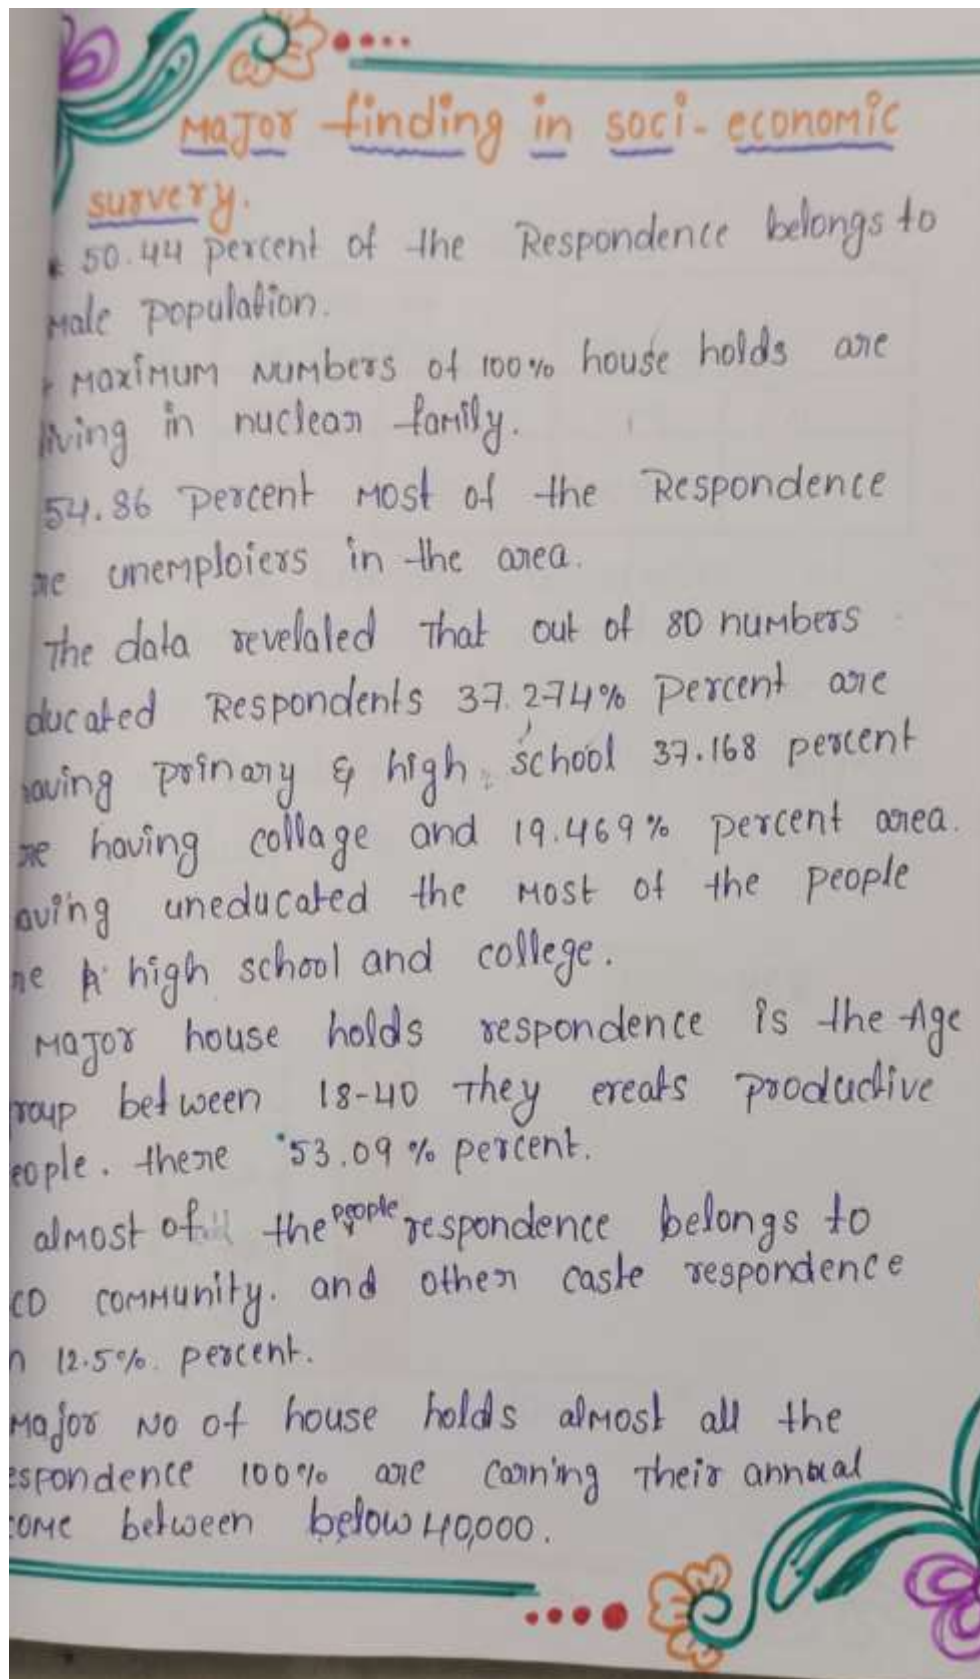 Major finding in soci-economic
survery.
* 50.44 percent of the Respondence belongs to
Male population.
* Maximum numbers of 100% house holds are
living in nuclear family.
54.86 percent most of the Respondence
re unemploiers in the area.
The data revelaled that out of 80 numbers
ducated Respondents 37.274% percent are
aving prinary & high school 37.168 percent
re having collage and 19.469% percent area.
aving uneducated the most of the people
re high school and college.
Major house holds respondence is the Age
roup between 18-40 They ereats productive
eople. there 53.09% percent.
almost of all the people respondence belongs to
CD community. and other caste respondence
n 12.5%. percent.
Major No of house holds almost all the
espondence 100% are earning Their annual
come between below 40,000.